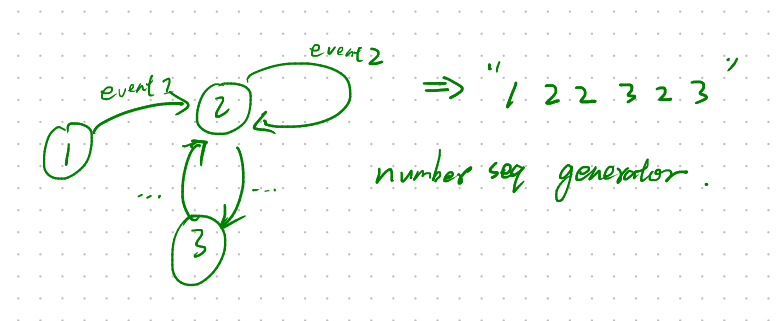 event 2
event 1
2
⇒ " 1 2 2 3 2 3 "
1
number seq generator.
... ...
3